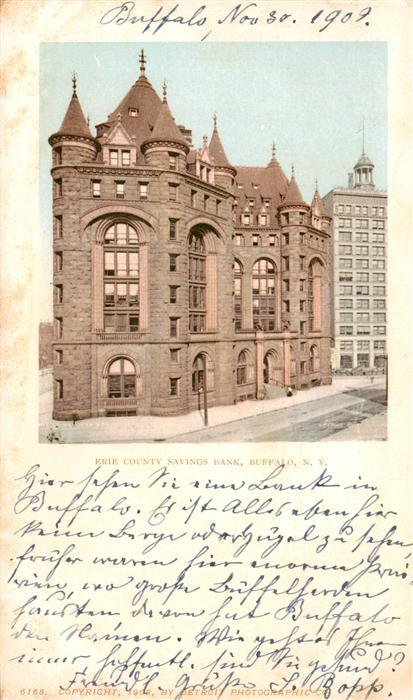 Buffalo, Nov 30. 1902.
ERIE COUNTY SAVINGS BANK, BUFFALO, N. Y.
Hier sehen Sie eine Bank in
Buffalo. Es ist Alles eben hier
keine Berge oder Hügel zu sehen
früher waren hier enorme Prai-
rien, wo große Büffelherden
hausten davon hat Buffalo
den Namen. Wie geht es Ihnen
immer hoffentl. sind Sie gesund?
Freundl. Grüße Bopp.
6168. COPYRIGHT, 1902, BY DETROIT PHOTOGRAPHIC CO.